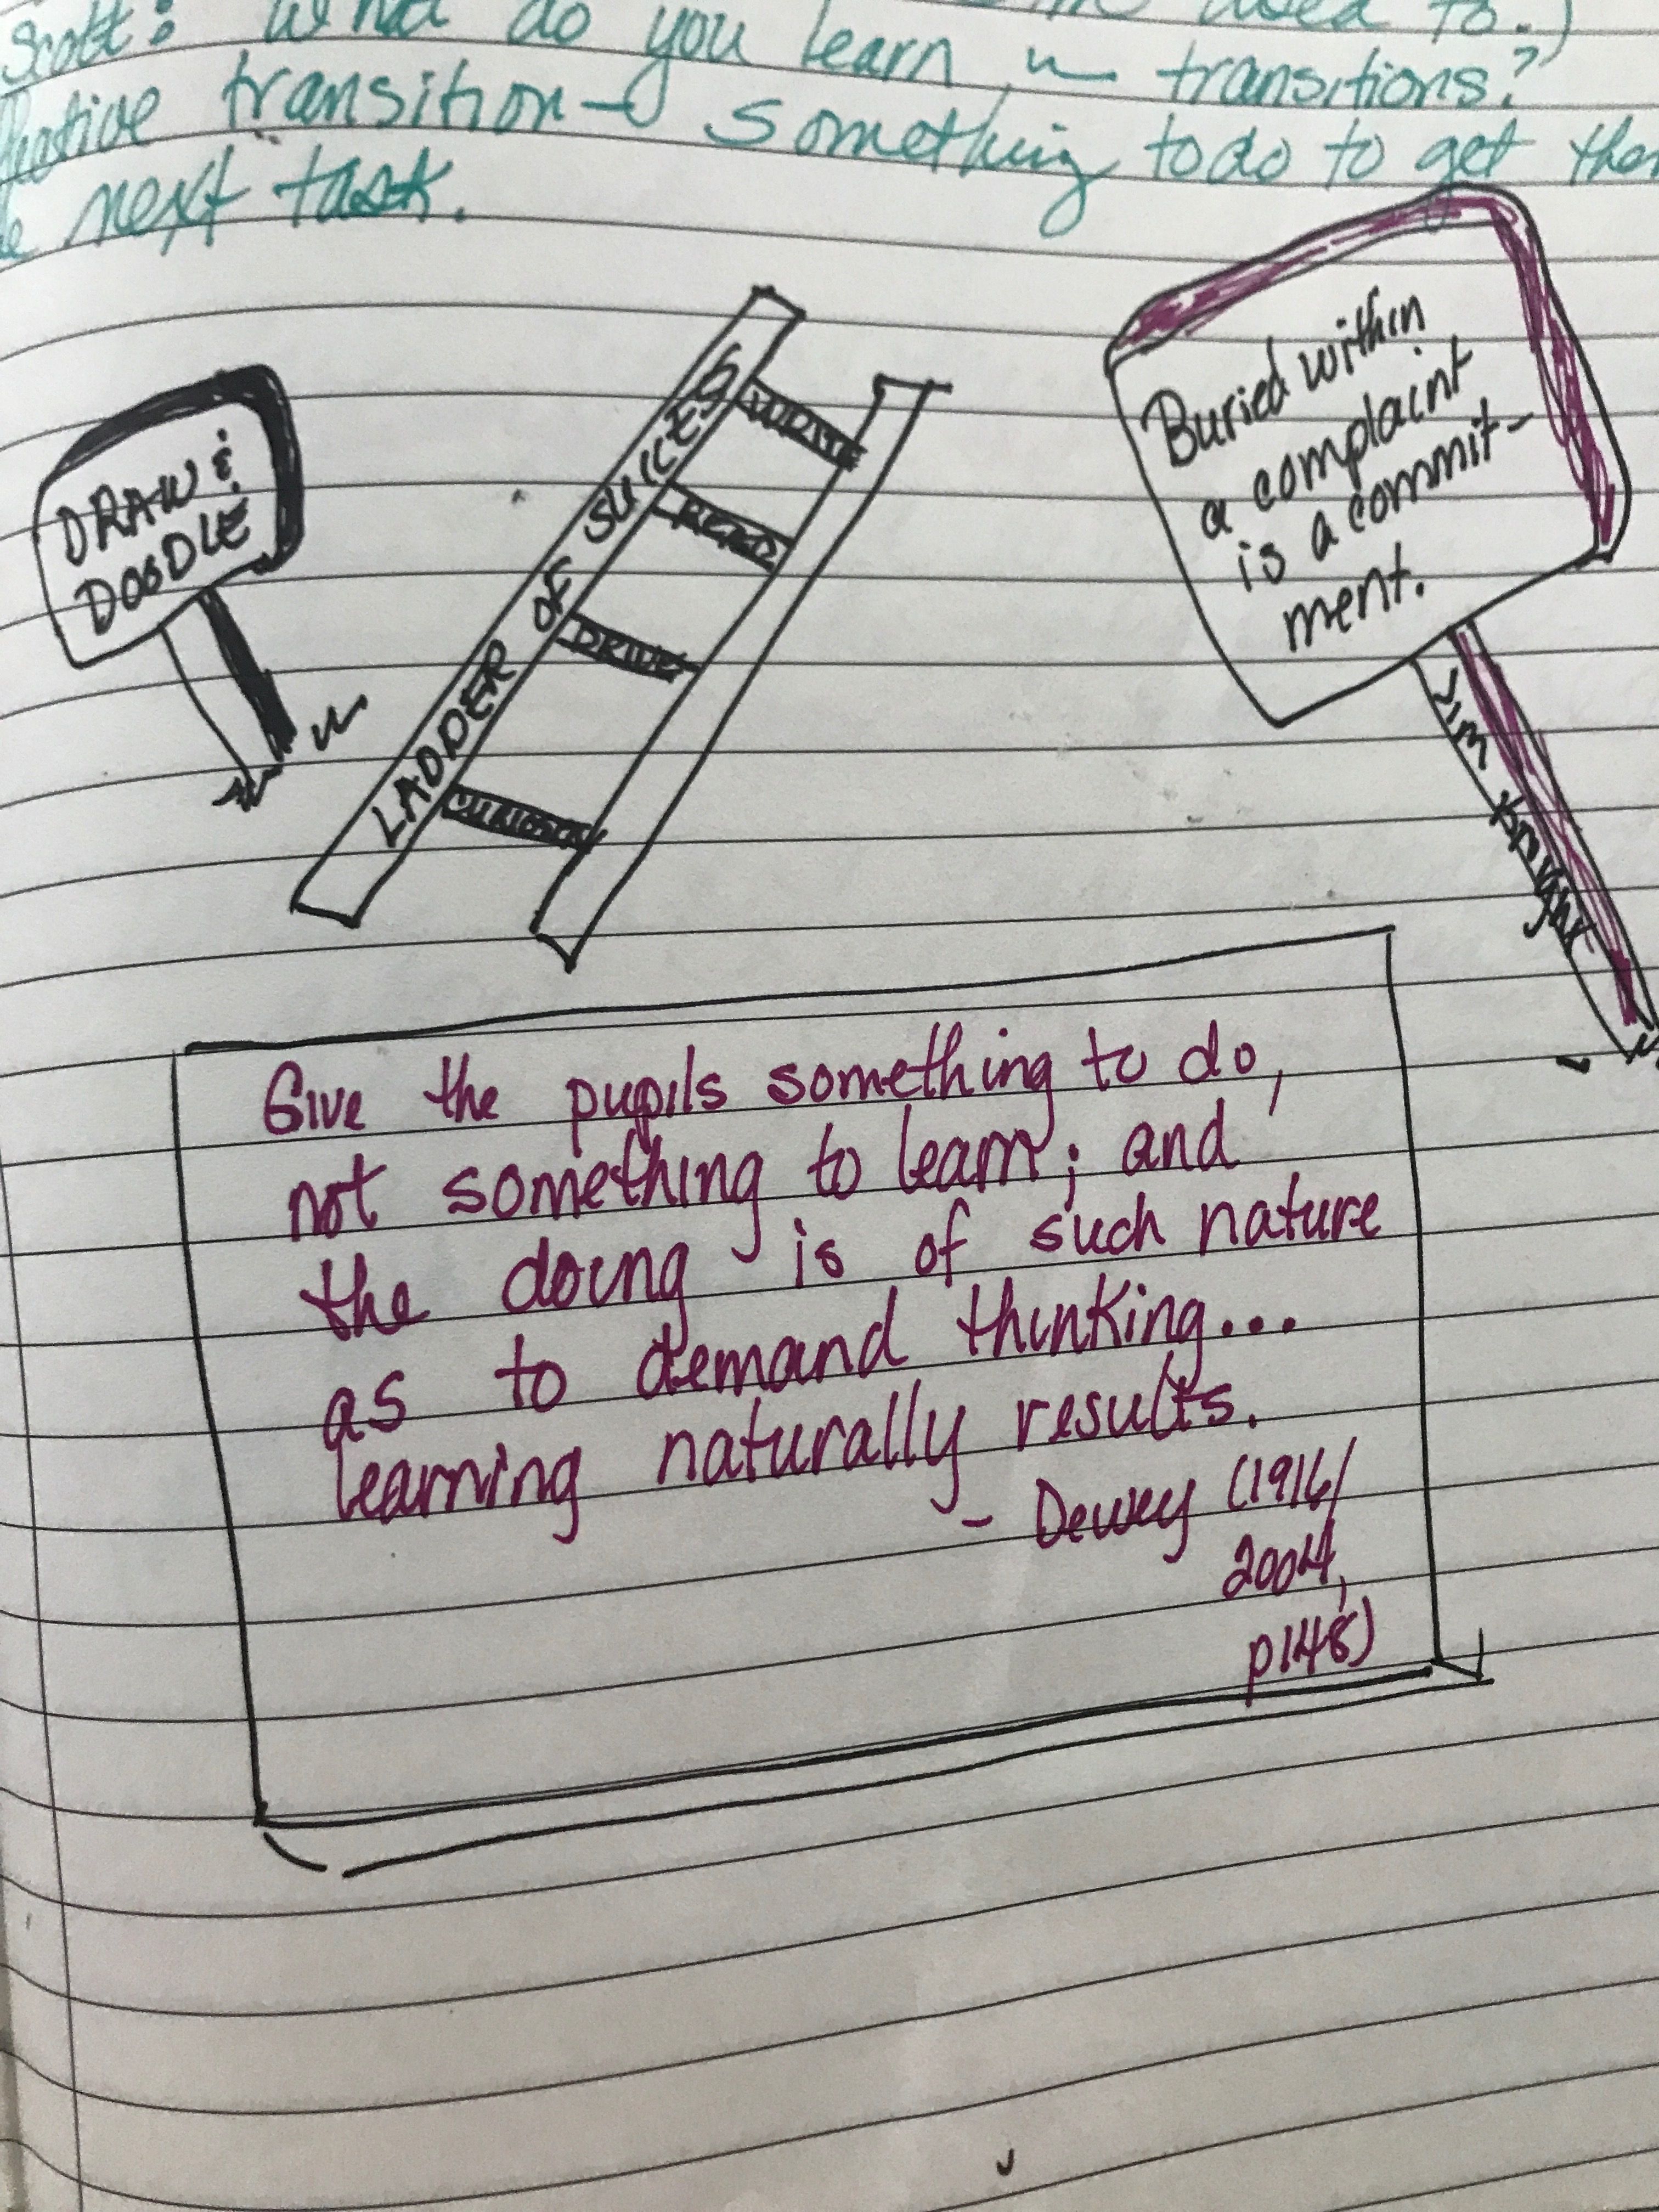 Scott: What do you learn in transitions?
transition → something to do to get
next task.
DRAW &
DOODLE
LADDER OF SUCCESS
WRITE
READ
DRIVE
CURIOSITY
Buried within
a complaint
is a commit-
ment.
Give the pupils something to do,
not something to learn; and
the doing is of such nature
as to demand thinking...
learning naturally results.
- Dewey (1916/
2004,
p148)